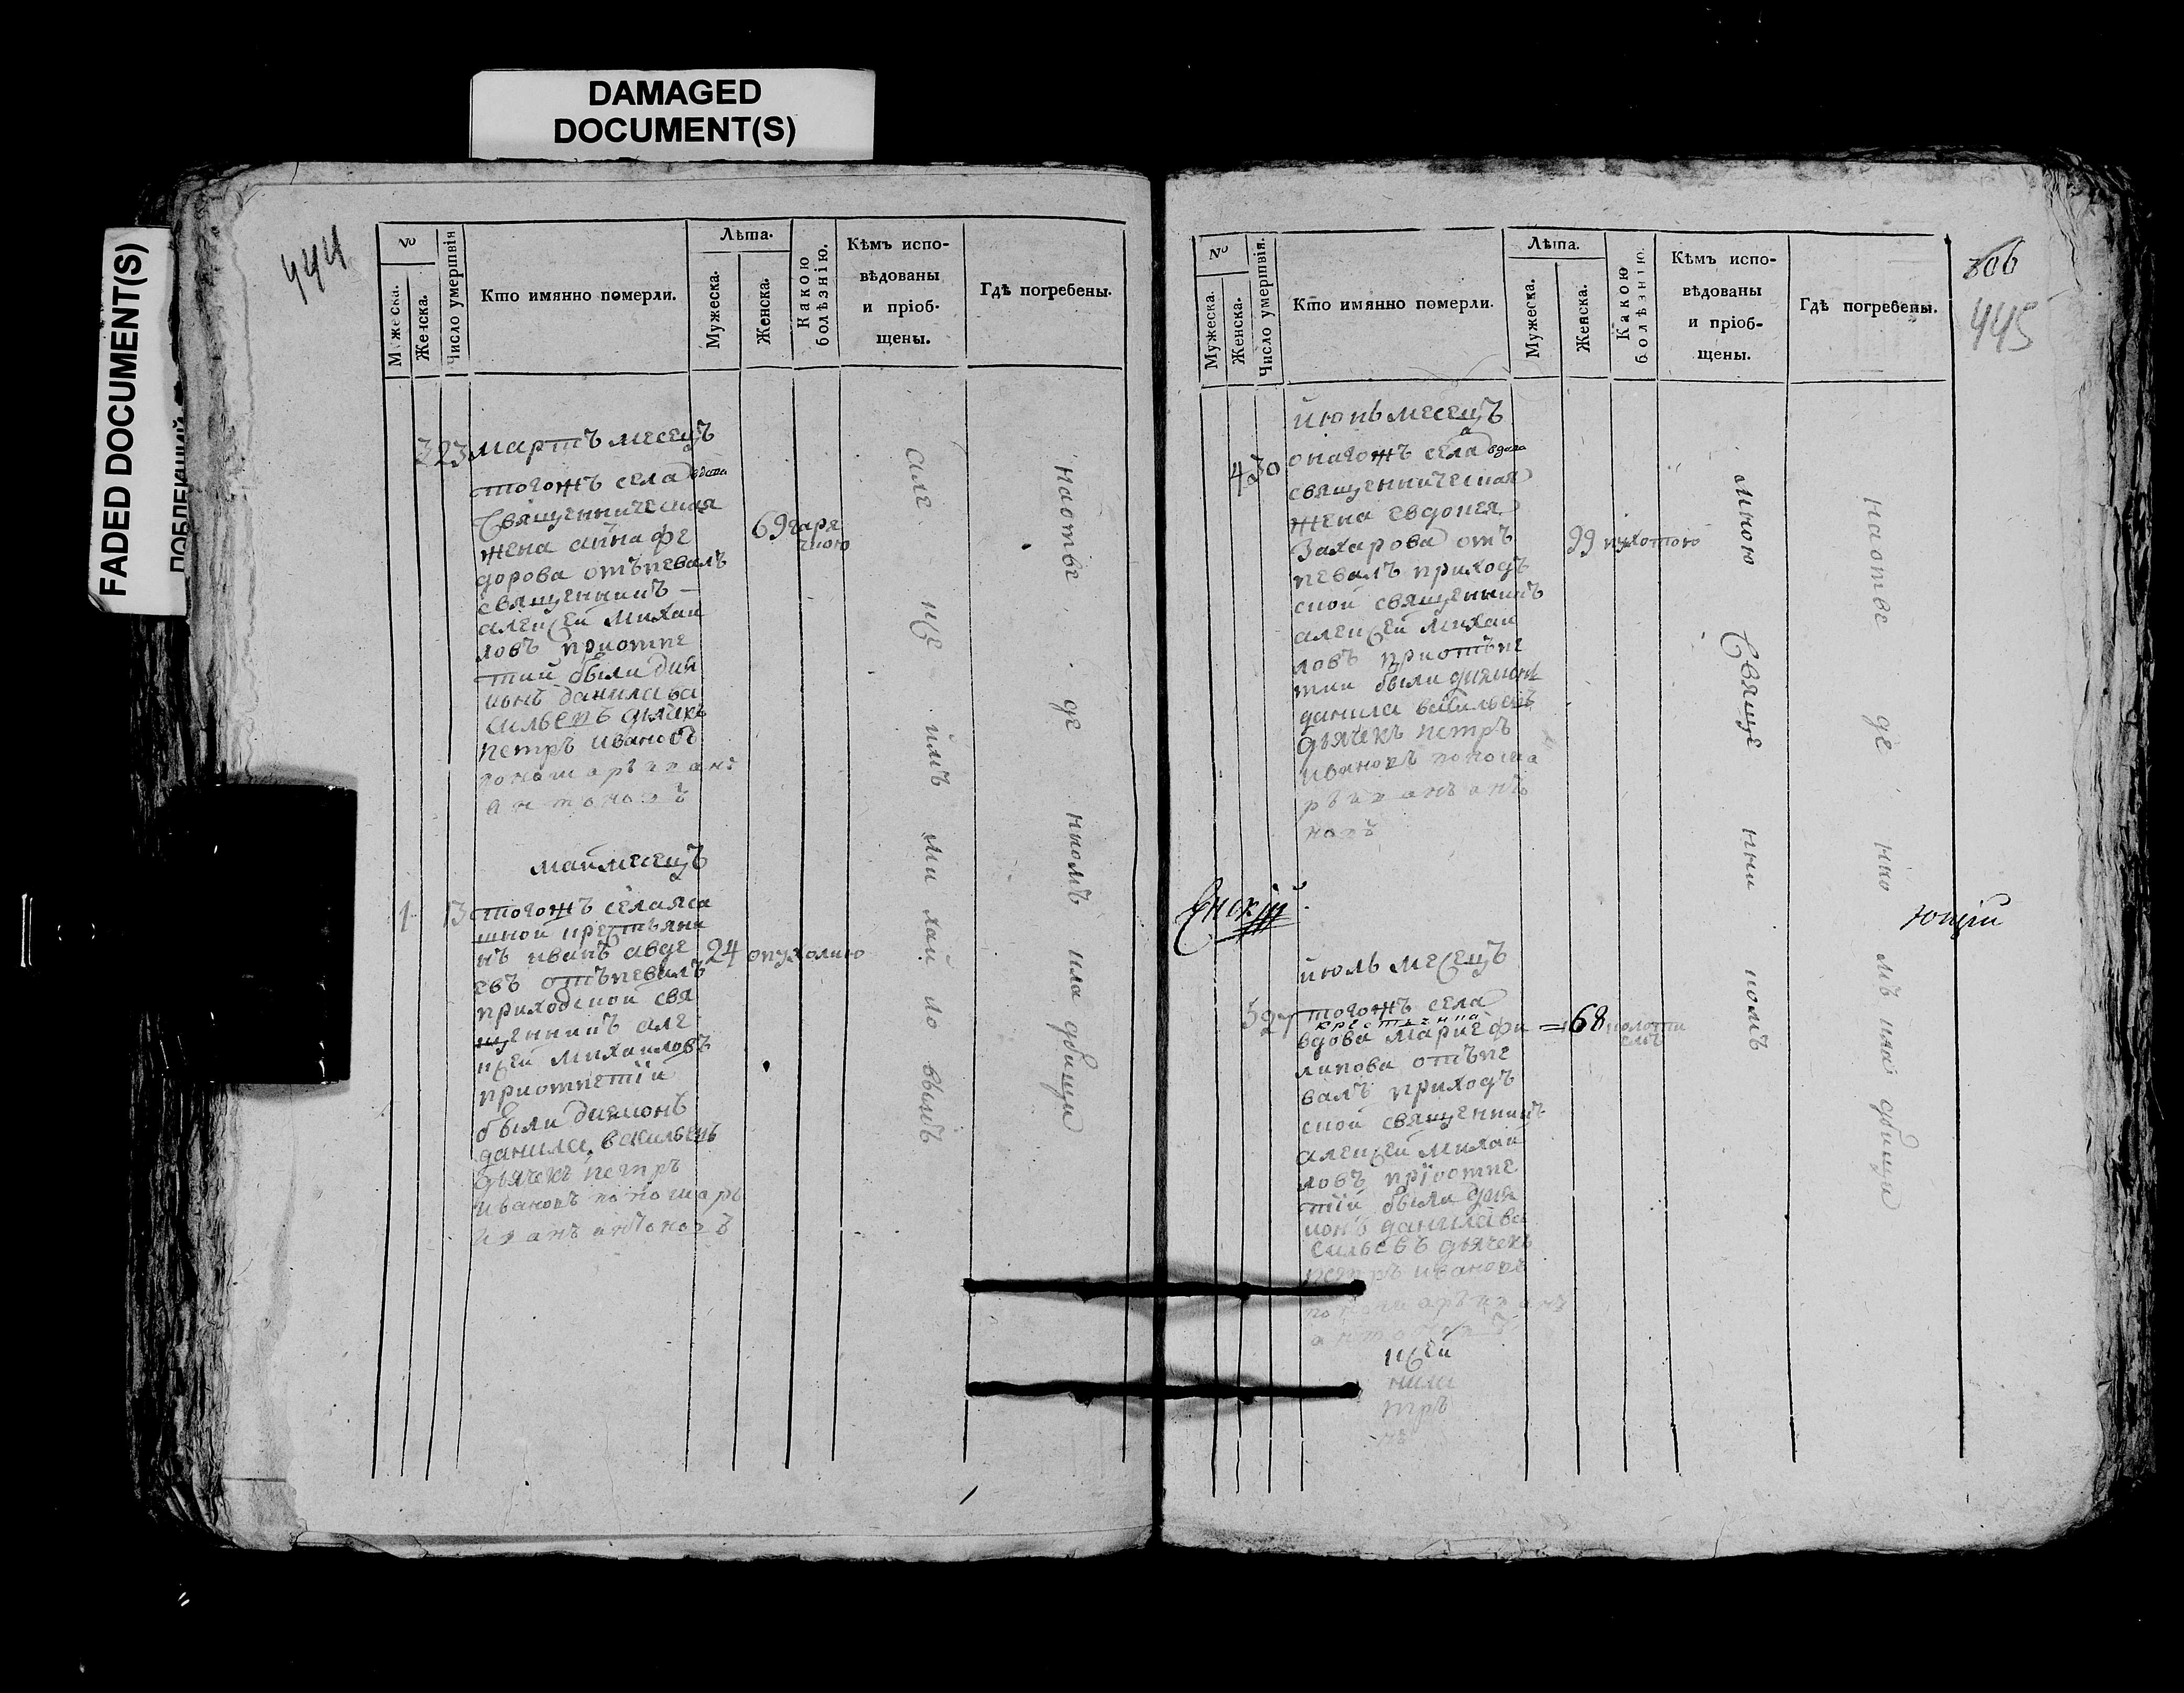 DAMAGED
DOCUMENT(S)
FADED DOCUMENT(S)
444
№
Мужеска.
Женска.
Число умертвія
Кто имянно померли.
Лѣта.
Мужеска.
Женска.
Какою
болѣзнію.
Кѣмъ испо-
вѣдованы
и пріоб-
щены.
Гдѣ погребены.
3 23 мартъ месецъ
тогожъ села вдова
священническая
жена анна фе
69 гаря
чкою
дорова отъпевалъ
священникъ
алексей михаи
ловъ приотпе
тии были дия
конъ данила ва
сильевъ дьячекъ
петръ ивановъ
пономарь иванъ
антоновъ
май месецъ
1 13 тогожъ села яса
шной крестьяни
нъ иванъ авде
24 опухолию
евъ отъпевалъ
приходской свя
щенникъ але
ксей михаиловъ
приотпетіи
были дияконъ
данила васильевъ
дьячекъ петръ
ивановъ пономарь
иванъ антоновъ
але ксе имъ ми хаи ло вымъ
наотве де нномъ кла дбищи
306
445
№
Мужеска.
Женска.
Число умертвія.
Кто имянно померли.
Лѣта.
Мужеска.
Женска.
Какою
болѣзнію.
Кѣмъ испо-
вѣдованы
и пріоб-
щены.
Гдѣ погребены.
июнь месецъ
4 30 онагожъ села вдова
священническая
жена евдокея
захарова отъ
99
певалъ приходъ
ской священникъ
алексей михаи
ловъ приотъпе
тии были дияконъ
данила васильевъ
дьячекъ петръ
ивановъ понома
рь иванъ анто
новъ
июль месецъ
5 27 тогожъ села
крестьянка
вдова марие фи
68
липова отъпе
валъ приходъ
ской священникъ
алексей михаи
ловъ пріотпе
тіи были дия
конъ данила ва
сильевъ дьячекъ
петръ ивановъ
пономарь иванъ
антоновъ
ксей
нила
тръ
мною свяще нни комъ
наотве де нно мъ кла дбищи
ющій